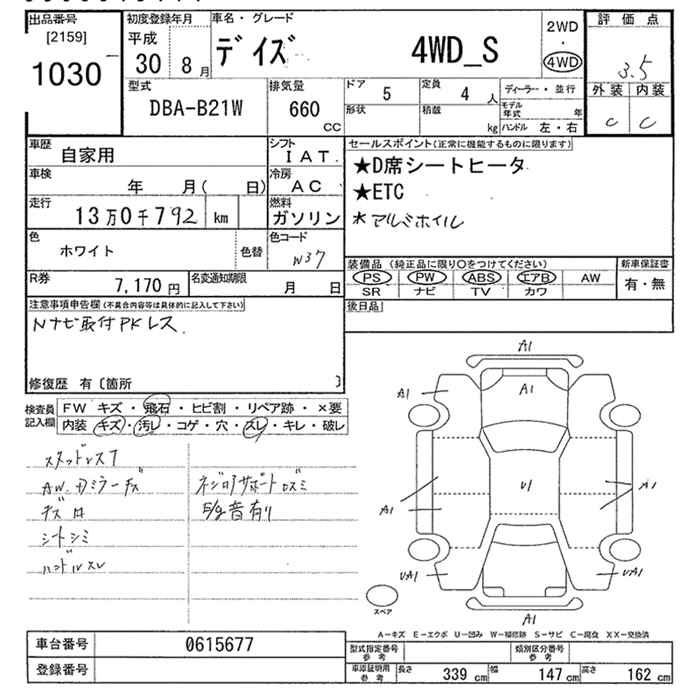 出品番号
[2159]
1030
初度登録年月
平成
30 8月
車名・グレード
デイズ 4WD_S
2WD
・
4WD
評価点
3.5
外装 内装
C C
型式
DBA-B21W
排気量
660
CC
ドア 5
定員 4 人
形状
積載 kg
ディーラー・並行
モデル年式 年
ハンドル 左・右
車歴
自家用
シフト
IAT
車検
年 月( 日)
冷房
AC
走行
13万0千792 km
燃料
ガソリン
色
ホワイト
色替
色コード
W37
R券
7,170円
名変通知期限
月 日
セールスポイント(正常に機能するものに限ります)
★D席シートヒータ
★ETC
*アルミホイル
装備品(純正品に限り〇をつけてください)
PS PW ABS エアB AW
SR ナビ TV カワ
新車保証書
有・無
後日品
注意事項申告欄(不具合内容等は具体的に記入して下さい)
Nナビ取付PKレス
修復歴 有〔箇所 〕
検査員記入欄
FW キズ・飛石・ヒビ割・リペア跡・×要
内装 キズ・汚レ・コゲ・穴・スレ・キレ・破レ
スタッドレスT
AW.ドミラーキズ
シートシミ
ハンドルスレ
異音有り
A1
A1
A1
A1
U1
A1
A1
UA1
UA1
A1
スペア
A-キズ E-エクボ U-凹み W-補修跡 S-サビ C-腐食 XX-交換済
車台番号 0615677
登録番号
型式指定番号参考
類別区分番号参考
車庫証明用参考
長さ 339 cm 幅 147 cm 高さ 162 cm